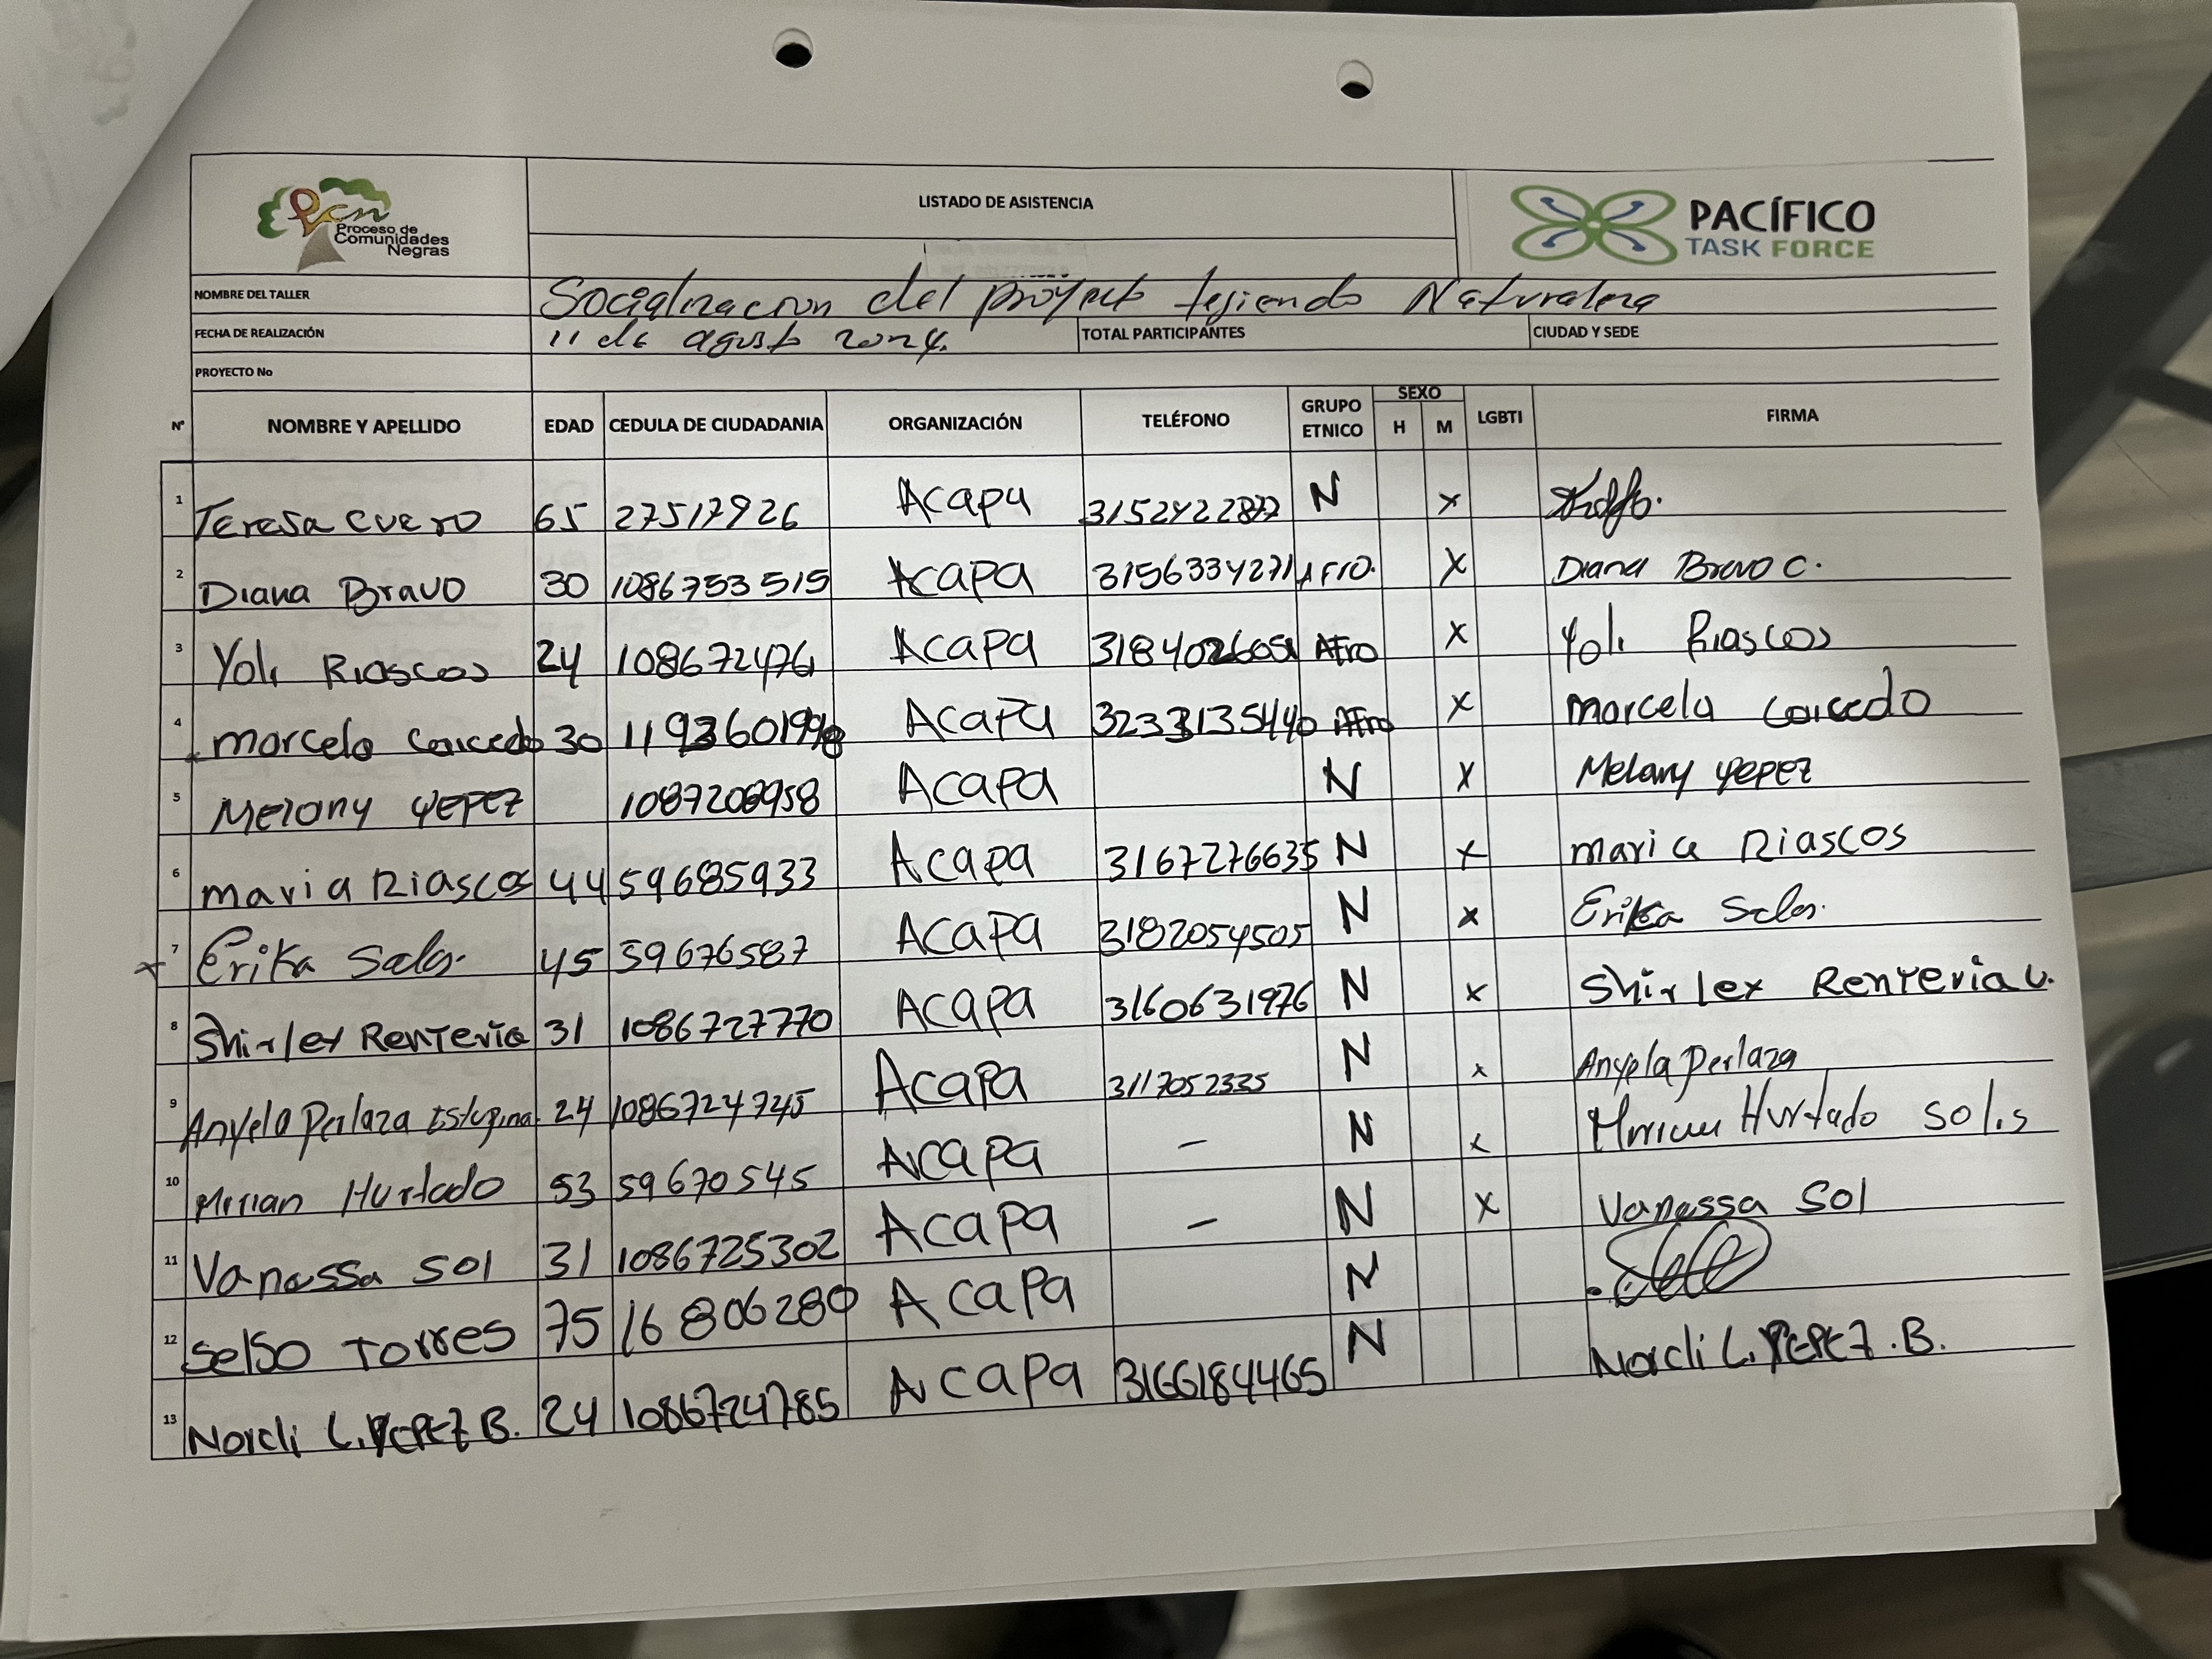 Pcn
Proceso de
Comunidades
Negras
LISTADO DE ASISTENCIA
PACÍFICO
TASK FORCE
NOMBRE DEL TALLER Socializacion del proyecto tejiendo Naturaleza
FECHA DE REALIZACIÓN 11 de agusto 2024. TOTAL PARTICIPANTES CIUDAD Y SEDE
PROYECTO No
N° NOMBRE Y APELLIDO EDAD CEDULA DE CIUDADANIA ORGANIZACIÓN TELÉFONO GRUPO ETNICO SEXO H M LGBTI FIRMA
1 Teresa Cuero 65 27517926 Acapa N x
2 Diana Bravo 30 1086753515 Acapa 3156334271 AFro. X Diana Bravo C.
3 Yoli Riascos 24 108672476 Acapa Afro X Yoli Riascos
4 marcela Caicedo 30 Acapa 3233135440 Afro X marcela Caicedo
5 Melany Yepez 1087208958 Acapa N X Melany Yepez
6 maria Riascos 44 59685933 Acapa 3167276635 N x maria Riascos
7 Erika Salas. 45 59676587 Acapa 3182054505 N x Erika Salas.
8 Shirley Renteria 31 1086727770 Acapa 3160631976 N x Shirley Renteria V.
9 Anyela Perlaza Estupiñan 24 1086724745 Acapa 3117052335 N x Anyela Perlaza
10 Mirian Hurtado 53 59670545 Acapa - N x Hurtado Solis
11 Vanessa Sol 31 1086725302 Acapa - N X Vanessa Sol
12 Selso Torres 75 16806280 Acapa N
13 Norcli L. YEPEZ B. 24 1086724785 Acapa 3166184465 N Norcli L. YEPEZ.B.